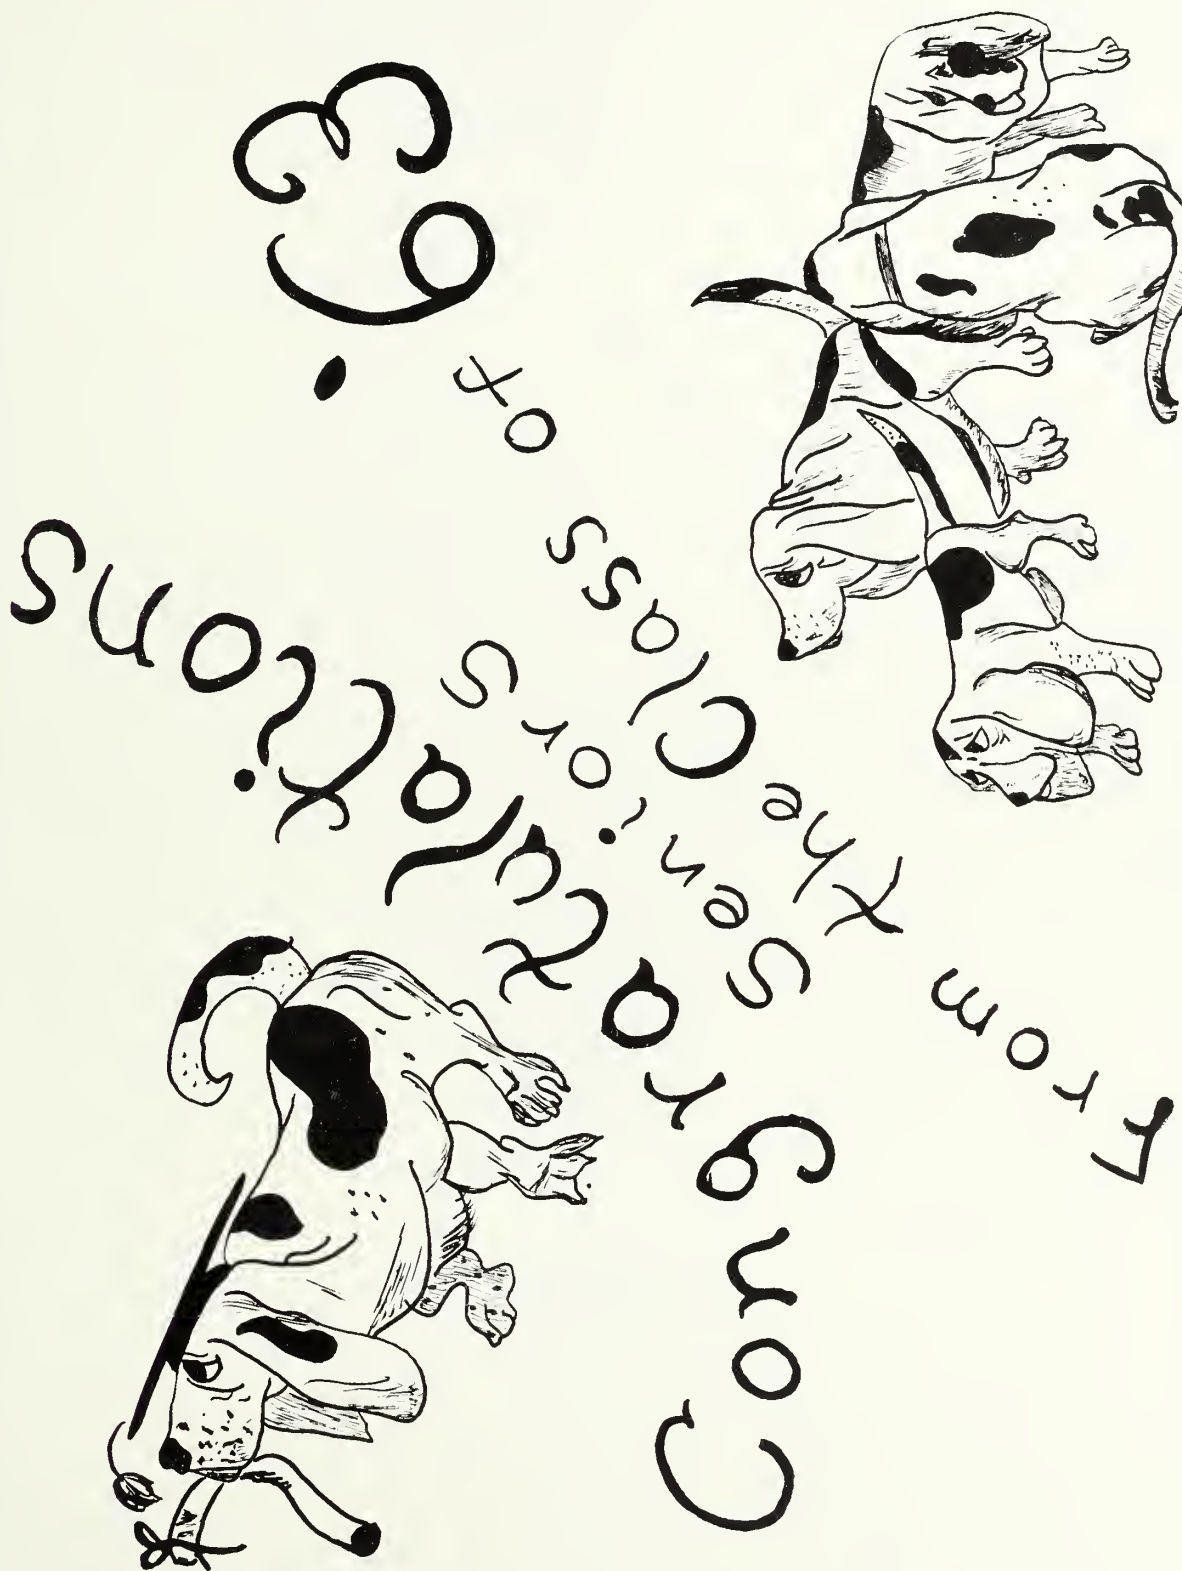 Congratulations
Seniors
From the Class of '63